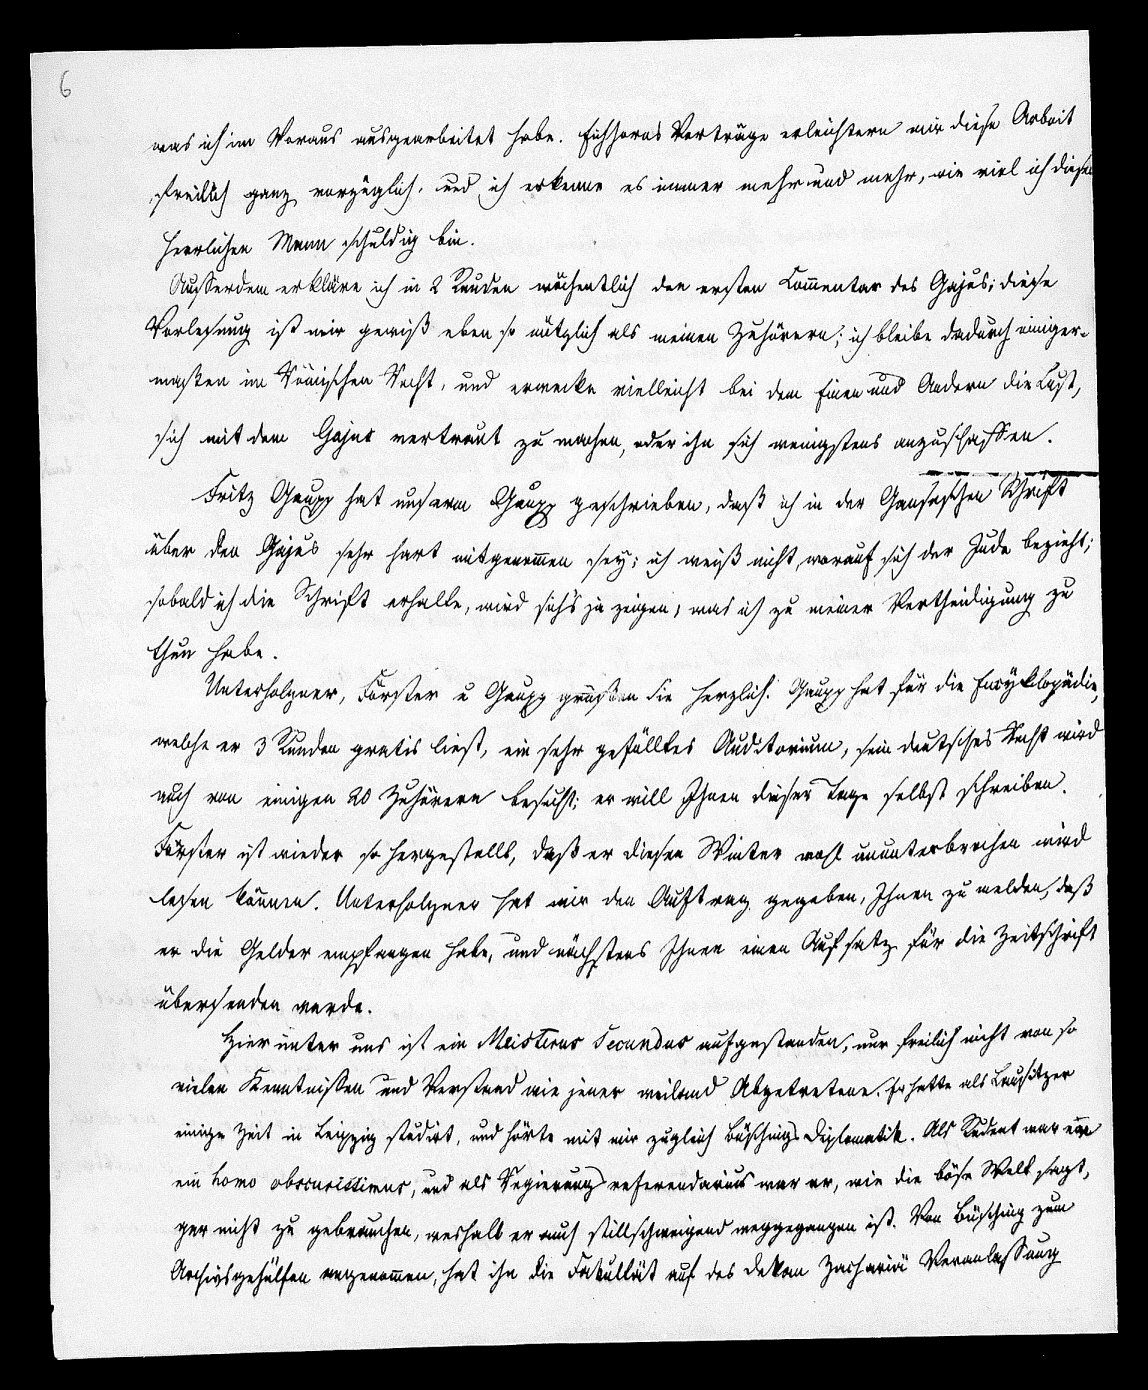 6
was ich im Voraus ausgearbeitet habe. Eichhorns Vorträge erleichtern mir diese Arbeit
freilich ganz vorzüglich, und ich erkenne es immer mehr und mehr, wie viel ich diesem
herrlichen Mann schuldig bin.
Ausserdem erkläre ich in 2 Stunden wöchentlich den ersten Com̅entar des Gajus; diese
Vorlesung ist mir gewiß eben so nützlich als meinen Zuhörern; ich bleibe dadurch einiger-
maßen im Römischen Recht, und erwecke vielleicht bei dem Einen und Andern die Lust,
sich mit dem Gajus vertraut zu machen, oder ihn sich wenigstens anzuschaffen.
Fritz Gaupp hat unserm Gaupp geschrieben, daß ich in der Gansischen Schrift
über den Gajus sehr hart mitgenom̅en sey; ich weiß nicht, worauf sich der Jude bezieht;
sobald ich die Schrift erhalte, wird sichs ja zeigen, was ich zu meiner Vertheidigung zu
thun habe.
Unterholzner, Förster u Gaupp grüßen Sie herzlich. Gaupp hat für die Encyklopädie,
welche er 3 Stunden gratis liest, ein sehr gefülltes Auditorium, sein deutsches Recht wird
auch von einigen 20 Zuhörern besucht; er will Ihnen dieser Tage selbst schreiben.
Förster ist wieder so hergestellt, daß er diesen Winter wohl ununterbrochen wird
lesen können. Unterholzner hat mir den Auftrag gegeben, Ihnen zu melden, daß
er die Gelder empfangen habe, und nächstens Ihnen einen Aufsatz für die Zeitschrift
übersenden werde.
Hier unter uns ist ein Meisterus Secundus aufgestanden, nur freilich nicht von so
vielen Kenntnissen und Verstand wie jener weiland Abgetretene. Er hatte als Lausitzer
einige Zeit in Leipzig studirt, und hörte mit mir zugleich Büschings Diplomatik. Als Student war er
ein homo obscurissimus, und als Regierungsreferendarius war er, wie die böse Welt sagt,
gar nicht zu gebrauchen, weshalb er auch stillschweigend weggegangen ist. Von Büsching zum
Archivsgehülfen angenom̅en, hat ihn die Fakultät auf des Dekan Zachariä Veranlassung